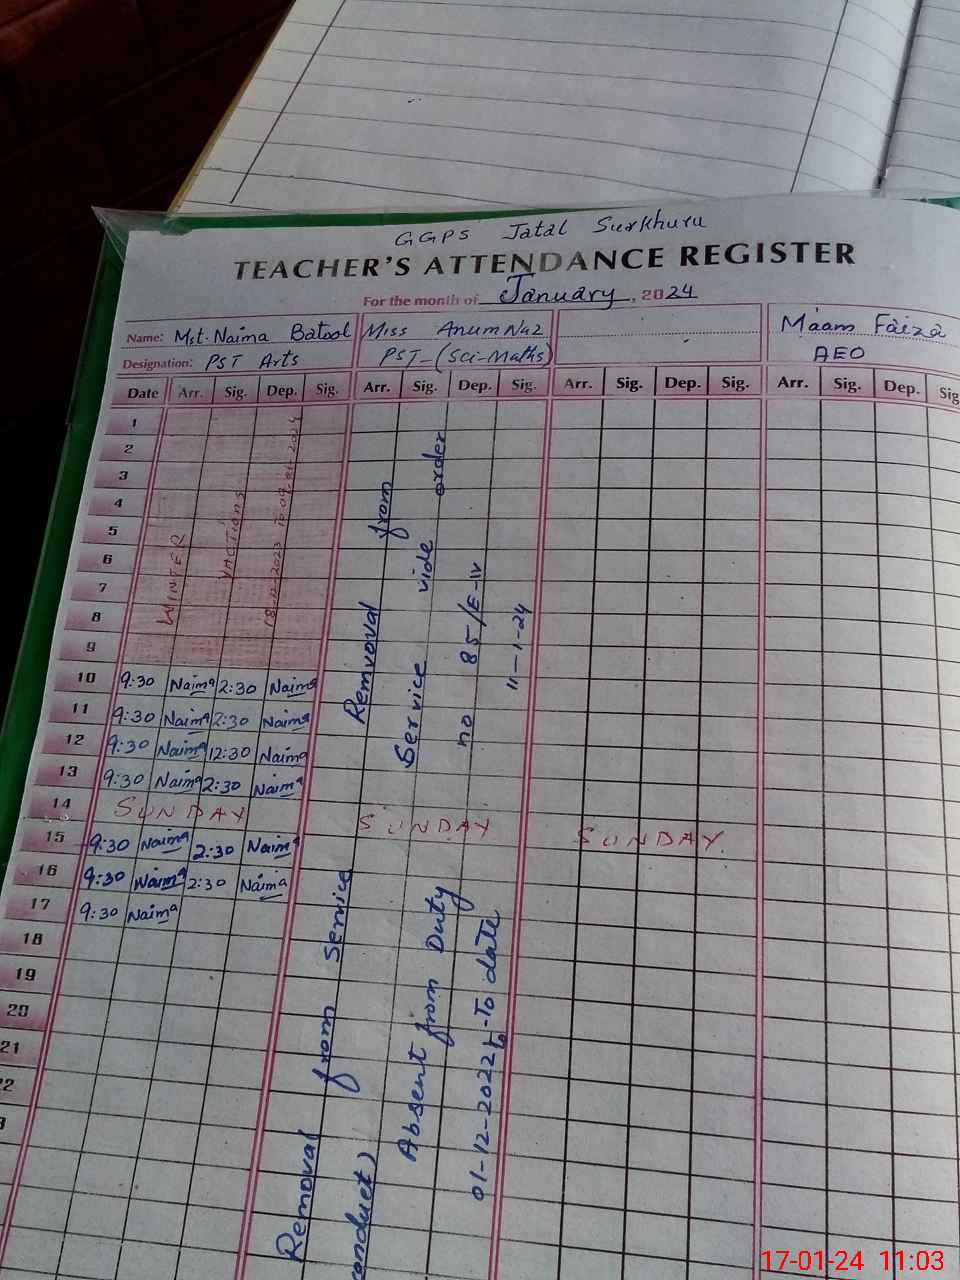 GGPS Jatal Surkhuru
TEACHER'S ATTENDANCE REGISTER
For the month of January, 2024
Name: Mst. Naima Batool Miss Anum Naz Maam Faiza
Designation: PST Arts PST-(Sci-Maths) AEO
Date Arr. Sig. Dep. Sig. Arr. Sig. Dep. Sig. Arr. Sig. Dep. Sig. Arr. Sig. Dep. Sig
1
2
3
4
5
6
7
8
9
WINTER
VACTIONS
18-12-2023 To 09-01-2024
10 9:30 Naima 2:30 Naima
11 9:30 Naima 2:30 Naima
12 9:30 Naima 12:30 Naima
13 9:30 Naima 2:30 Naima
14 SUNDAY SUNDAY SUNDAY
15 9:30 Naima 2:30 Naima
16 9:30 Naima 2:30 Naima
17 9:30 Naima
18
19
20
21
Removal from
Service vide order
no 85/E-IV
11-1-24
Removal from service
conduct)
Absent from Duty
01-12-2022 to To date
17-01-24 11:03